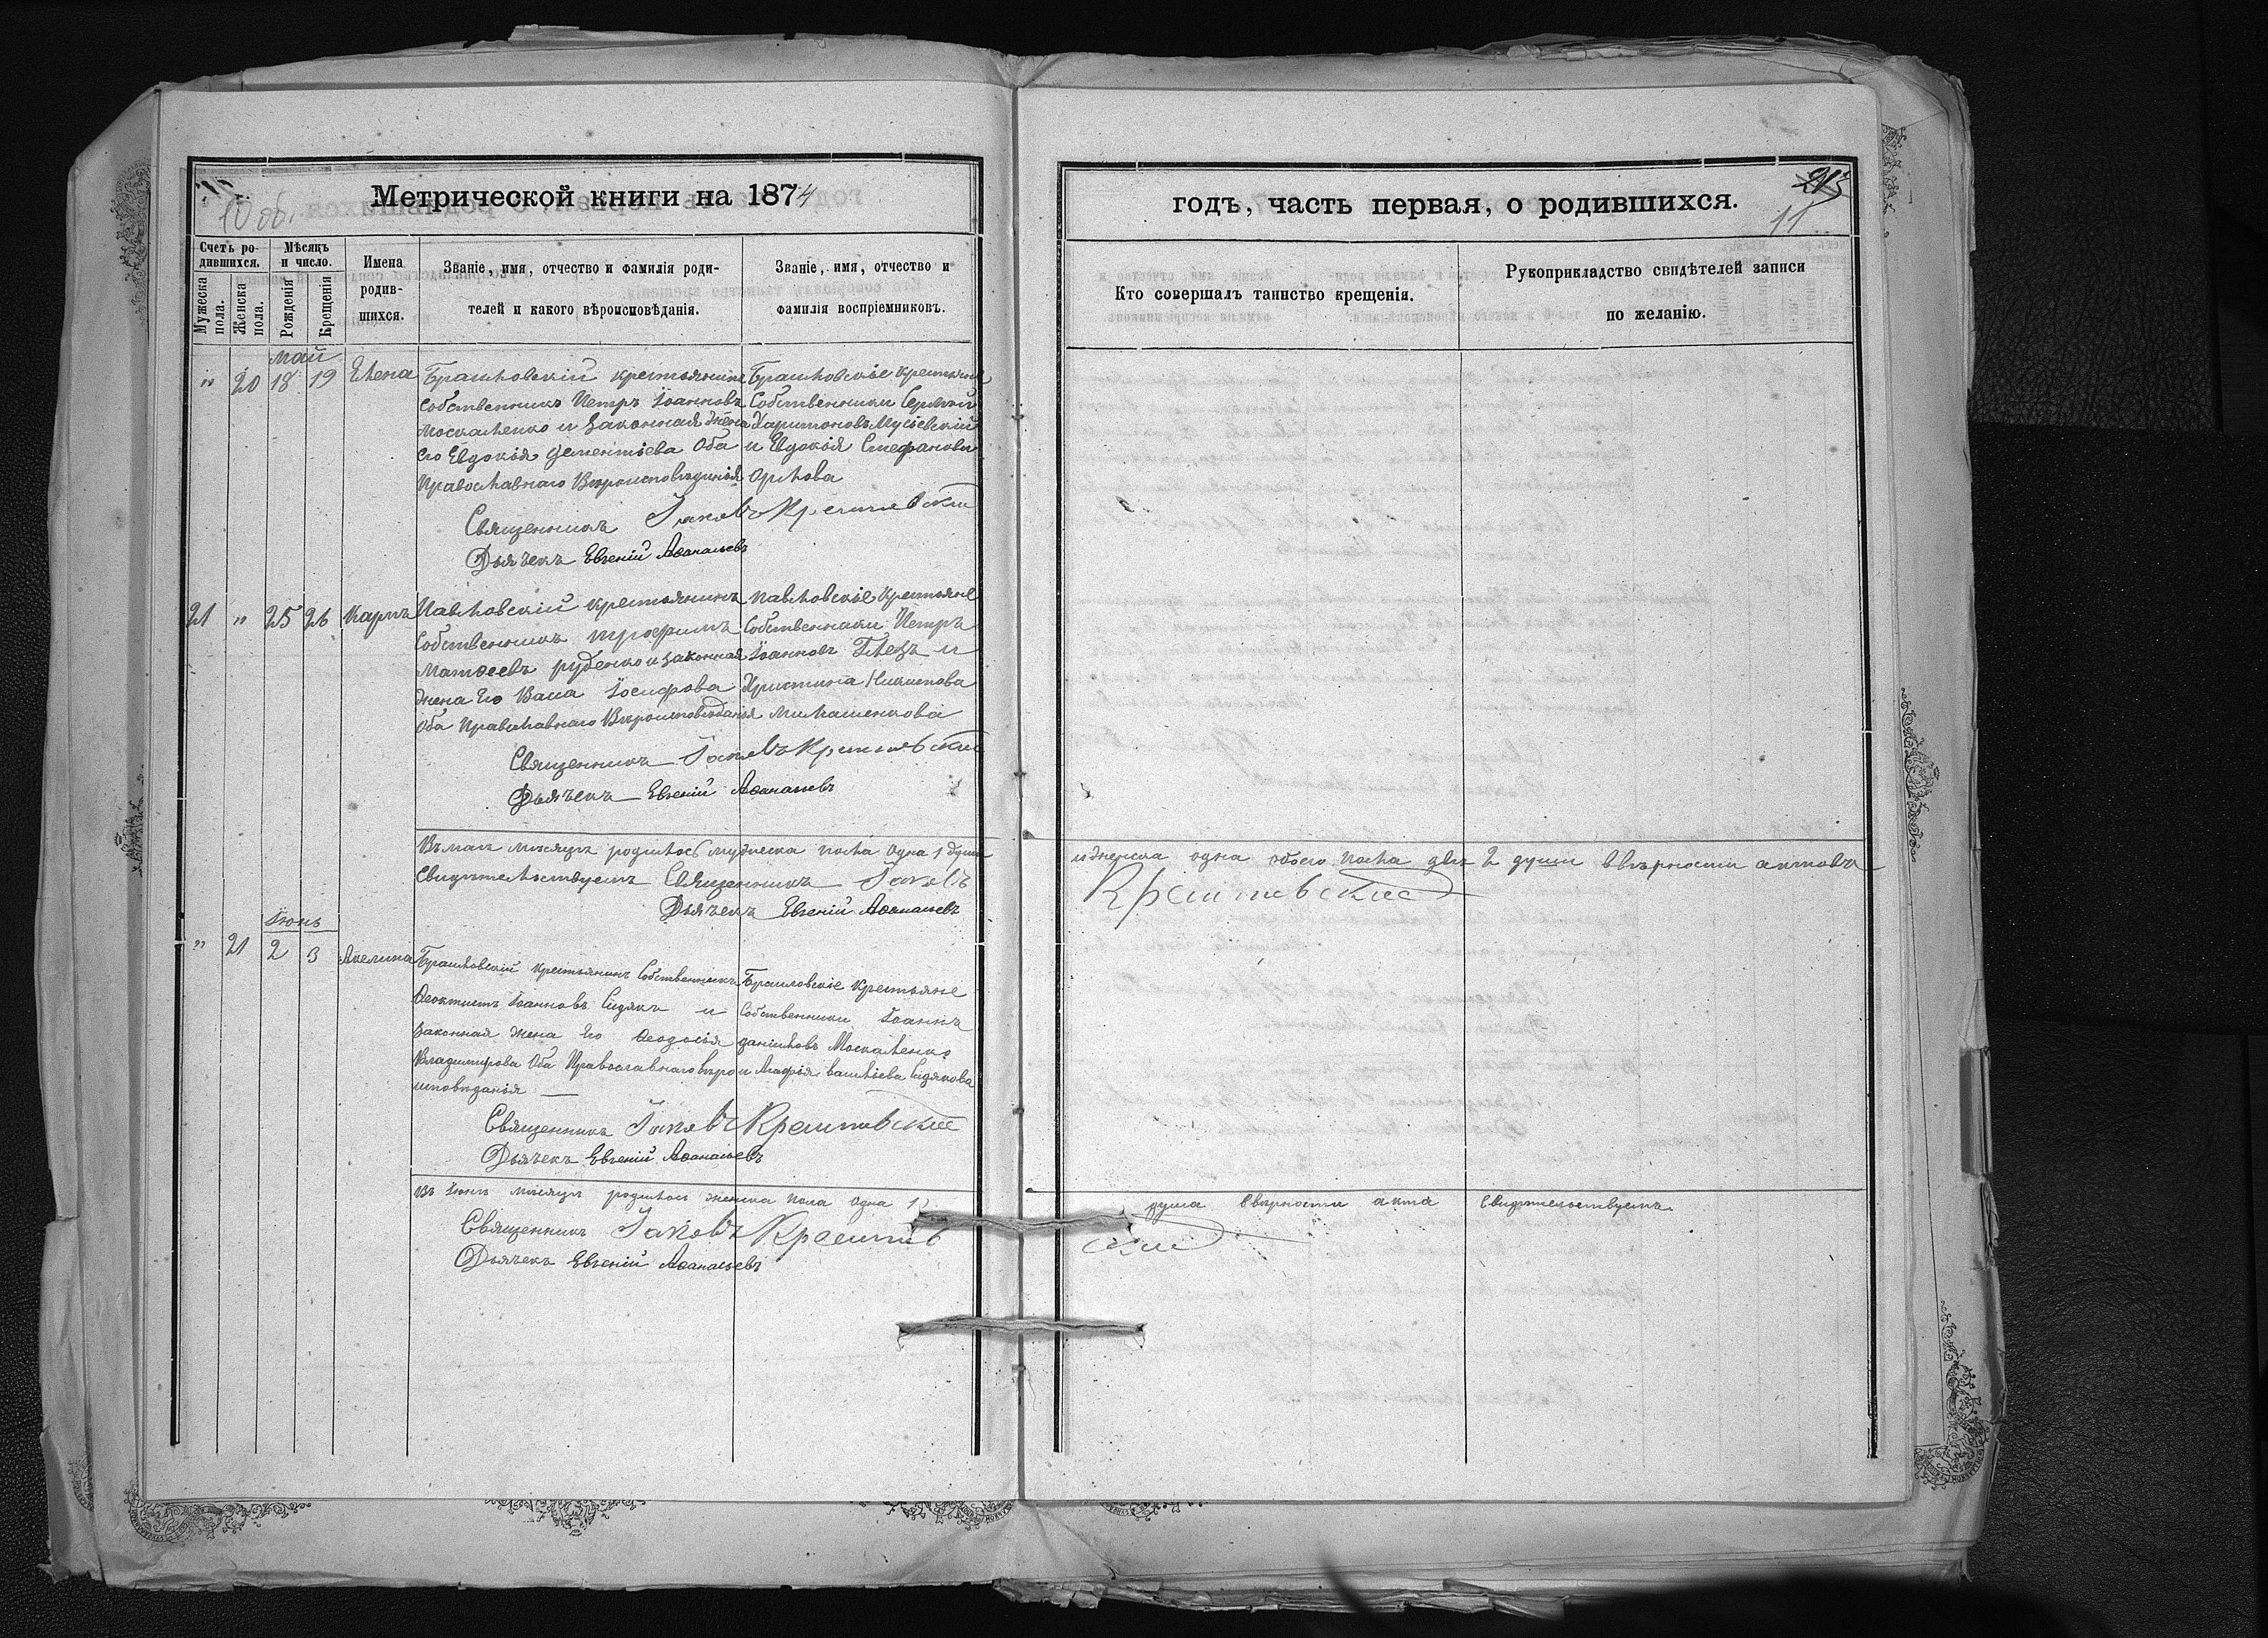 10 об.
Метрической книги на 1874
Счетъ ро-
дившихся.
Мѣсяцъ
и число.
Имена
родив-
шихся.
Званіе, имя, отчество и фамилія роди-
телей и какого вѣроисповѣданія.
Званіе, имя, отчество и
фамилія воспріемниковъ.
Мужеска
пола.
Женска
пола.
Рожденія
Крещенія
май
" 20 18 19 Елена
Браиловскій крестьянинъ
Собственникъ Петръ Іоанновъ
Москаленко и законная жена
Его Евдокія Дементіева Оба
Православнаго Вѣроисповѣданія
Браиловскіе крестьяне
Собственники Сергѣй
Харитоновъ Мусіевскій
и Евдокія Стефанова
Орлова
Священникъ Іаковъ
Дьячекъ Евгеній Аѳанасьевъ
21 " 25 26 Карпъ
Павловскій крестьянинъ
Собственникъ Трофимъ
Матѳеевъ Руденко и законная
жена Его Васса Іосифова
Оба Православнаго Вѣроисповѣданія
Павловскіе крестьяне
Собственники Петръ
Іоанновъ и
Христина
Священникъ Іаковъ
Дьячекъ Евгеній Аѳанасьевъ
Въ маѣ мѣсяцѣ родилось мужеска пола одна 1 душа
Свидѣтельствуемъ Священникъ Іаковъ
Дьячекъ Евгеній Аѳанасьевъ
Іюнь
" 21 2 3 Акелина
Браиловскій крестьянинъ Собственникъ
Ѳеоктистъ Іоанновъ Сидякъ и
законная жена Его Ѳеодосія
Владимирова Оба Православнаго вѣро
исповѣданія
Браиловскіе крестьяне
Собственники Іоаннъ
Даніиловъ Москаленко
и Агафія Василіева Сидякова
Священникъ Іаковъ
Дьячекъ Евгеній Аѳанасьевъ
Въ Іюнѣ мѣсяцѣ родилось женска пола одна 1
Священникъ Іаковъ
Дьячекъ Евгеній Аѳанасьевъ
11
годъ, часть первая, о родившихся.
Кто совершалъ таинство крещенія.
Рукоприкладство свидѣтелей записи
по желанію.
и женска одна обоего пола двѣ 2 души вѣрности актовъ
душа вѣрности акта свидѣтельствуемъ